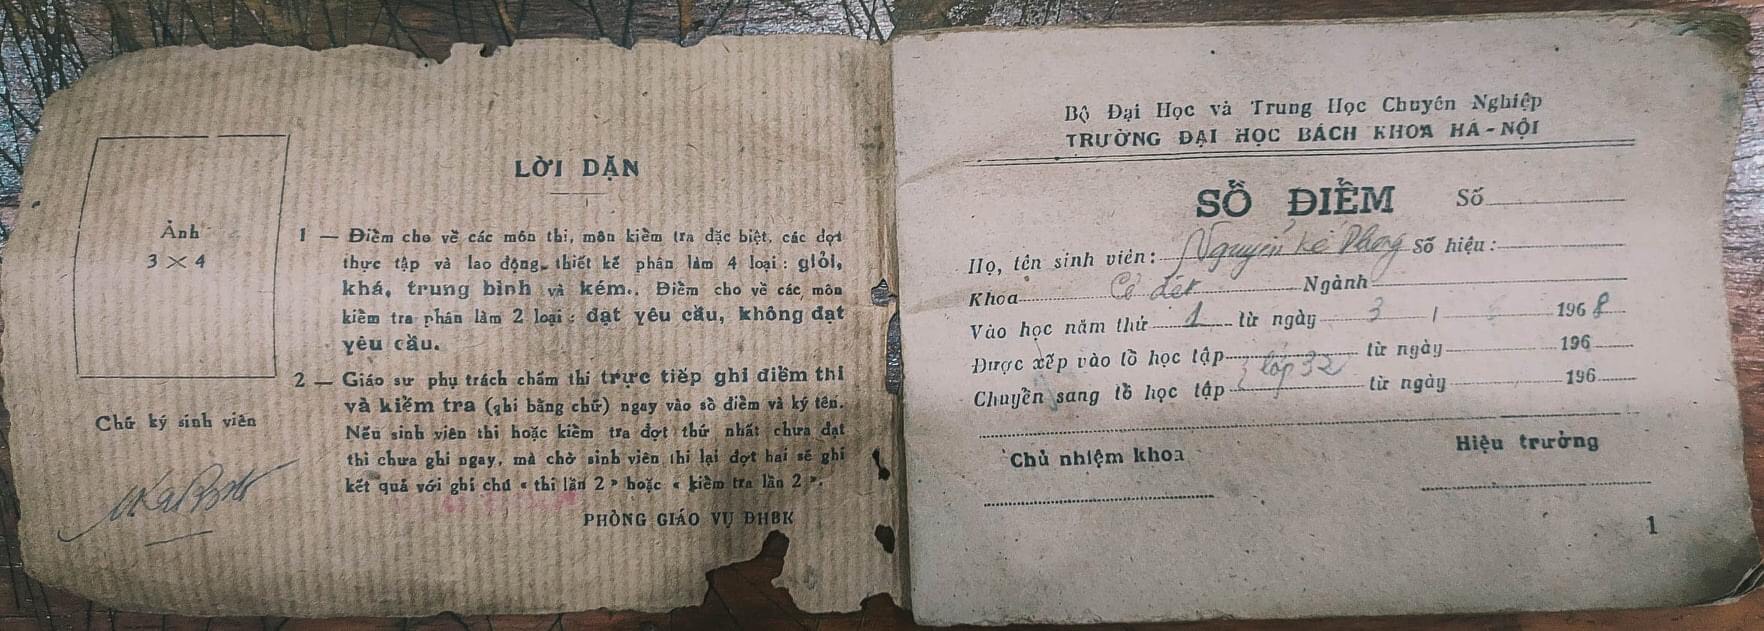 Ảnh
3 × 4
Chữ ký sinh viên
LỜI DẶN
1 — Điểm cho về các môn thi, môn kiểm tra đặc biệt, các đợt
thực tập và lao động, thiết kế phân làm 4 loại: giỏi,
khá, trung bình và kém. Điểm cho về các môn
kiểm tra phân làm 2 loại: đạt yêu cầu, không đạt
yêu cầu.
2 — Giáo sư phụ trách chấm thi trực tiếp ghi điểm thi
và kiểm tra (ghi bằng chữ) ngay vào sổ điểm và ký tên.
Nếu sinh viên thi hoặc kiểm tra đợt thứ nhất chưa đạt
thì chưa ghi ngay, mà chờ sinh viên thi lại đợt hai sẽ ghi
kết quả với ghi chú « thi lần 2 » hoặc « kiểm tra lần 2 ».
PHÒNG GIÁO VỤ ĐHBK
Bộ Đại Học và Trung Học Chuyên Nghiệp
TRƯỜNG ĐẠI HỌC BÁCH KHOA HÀ-NỘI
SỔ ĐIỂM Số
Họ, tên sinh viên: Nguyễn Kế Phong Số hiệu:
Khoa Cơ dệt Ngành
Vào học năm thứ 1 từ ngày 3 / 1968
Được xếp vào tổ học tập từ ngày 196
Chuyển sang tổ học tập lớp 32 từ ngày 196
Chủ nhiệm khoa Hiệu trưởng
1